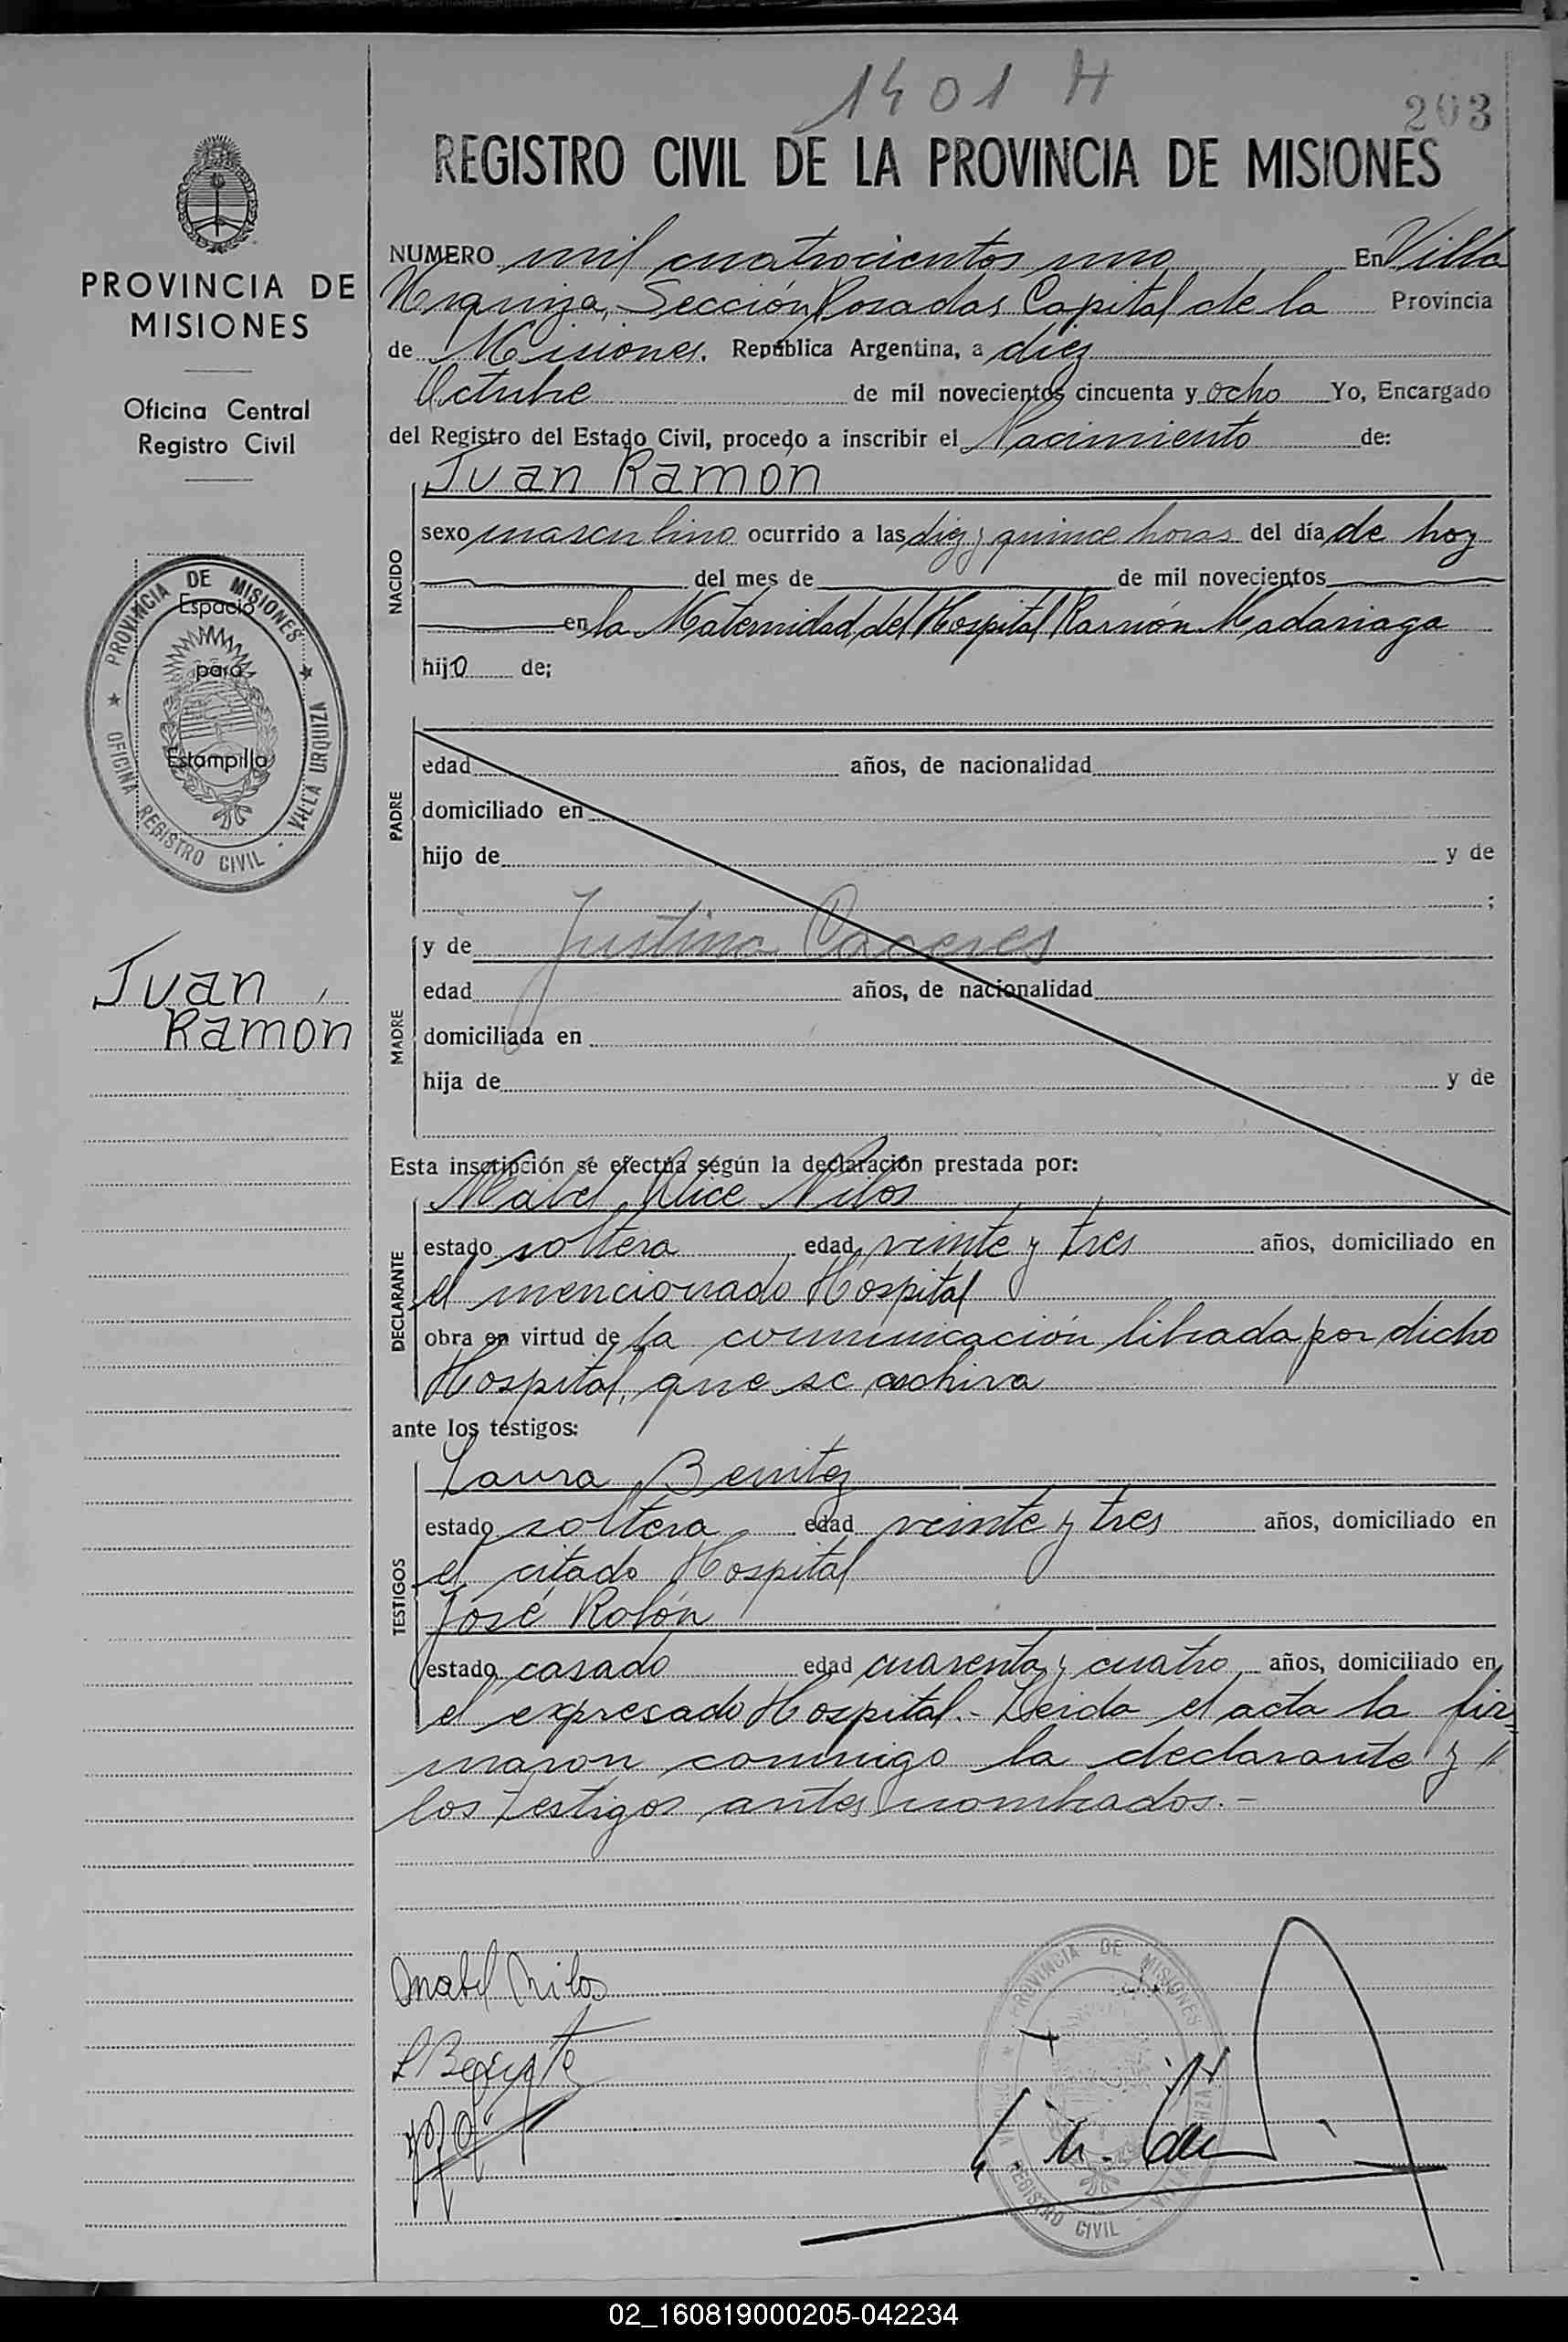 1401 H
203
REGISTRO CIVIL DE LA PROVINCIA DE MISIONES
PROVINCIA DE
MISIONES
Oficina Central
Registro Civil
PROVINCIA DE MISIONES ★ VILLA URQUIZA - REGISTRO CIVIL OFICINA ★
Espacio
para
Estampilla
Juan
Ramón
NUMERO mil cuatrocientos uno En Villa
Urquiza, Sección Posadas Capital de la Provincia
de Misiones. República Argentina, a diez
Octubre de mil novecientos cincuenta y ocho Yo, Encargado
del Registro del Estado Civil, procedo a inscribir el Nacimiento de:
NACIDO
Juan Ramón
sexo masculino ocurrido a las diez y quince horas del día de hoy
del mes de de mil novecientos
en la Maternidad del Hospital Ramón Madariaga
hijo de;
PADRE
edad años, de nacionalidad
domiciliado en
hijo de y de
;
MADRE
y de Justina Caceres
edad años, de nacionalidad
domiciliada en
hija de y de
Esta inscripción se efectúa según la declaración prestada por:
DECLARANTE
Mabel Alice Nilos
estado soltera edad veinte y tres años, domiciliado en
el mencionado Hospital
obra en virtud de la comunicación librada por dicho
Hospital, que se archiva
ante los testigos:
TESTIGOS
Laura Benitez
estado soltera edad veinte y tres años, domiciliado en
el citado Hospital
José Rolón
estado casado edad cuarenta y cuatro años, domiciliado en
el expresado Hospital.- Leida el acta la fir=
maron conmigo la declarante y //
los testigos antes nombrados.-
Mabel Nilos
PROVINCIA DE MISIONES
REGISTRO CIVIL
02_160819000205-042234